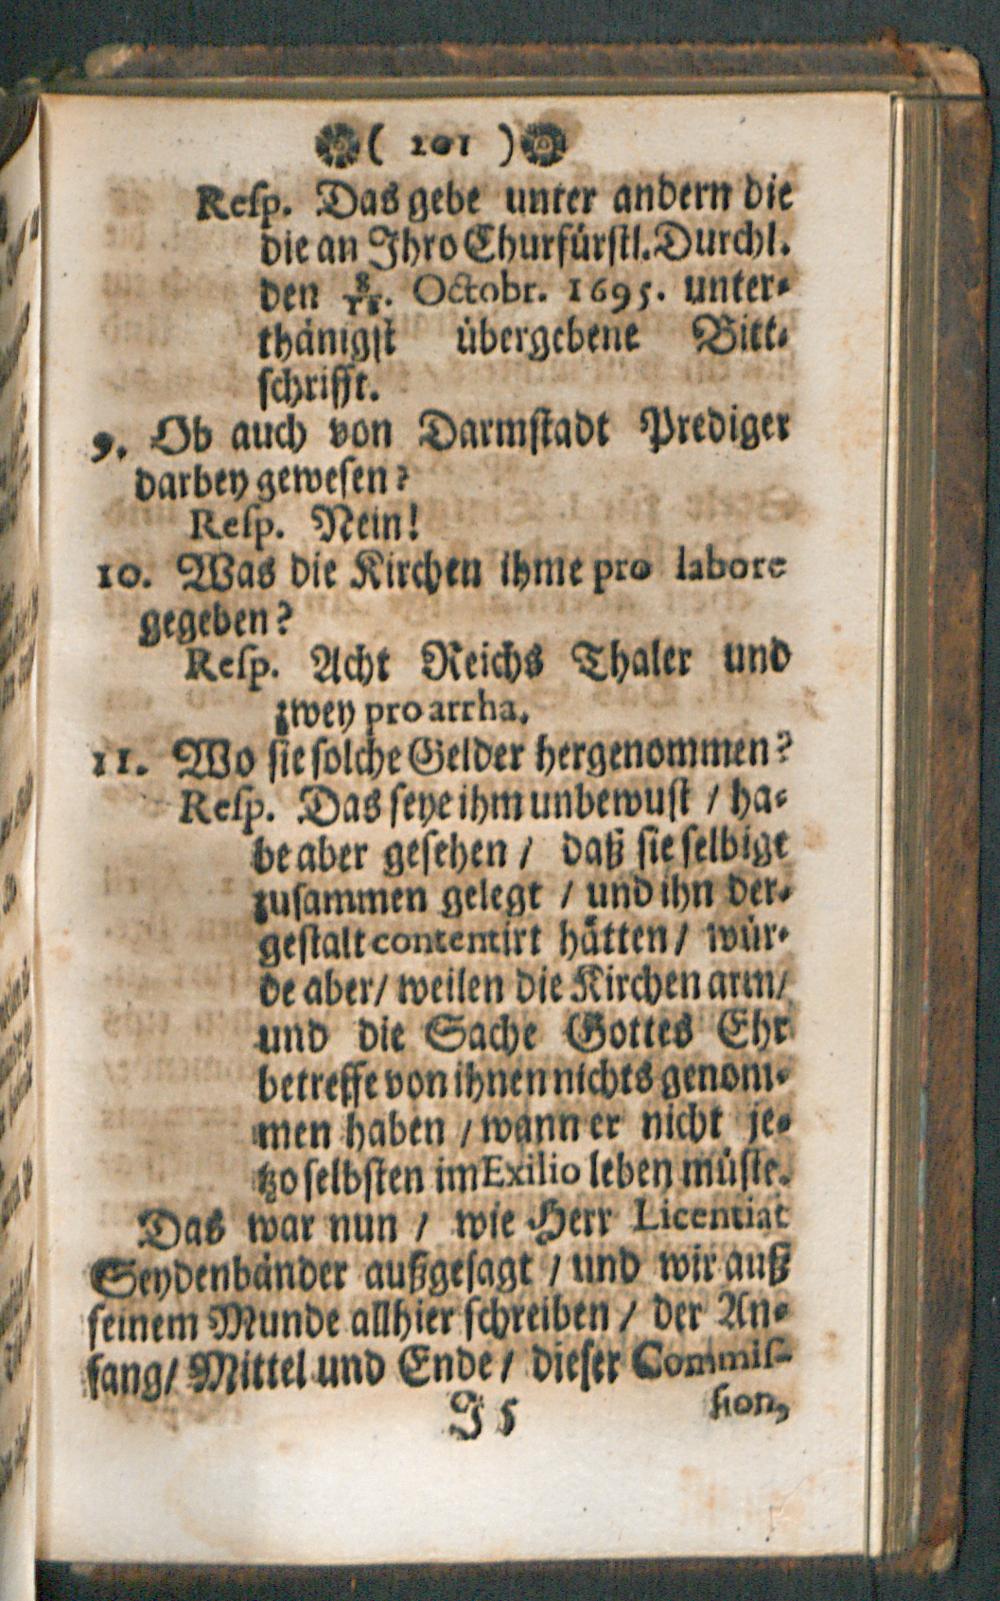 ( 101 )
Resp. Das gebe unter andern die
die an Ihro Churfürstl. Durchl.
den 8/18. Octobr. 1695. unter-
thänigst übergebene Bitt-
schrifft.
9. Ob auch von Darmstadt Prediger
darbey gewesen?
Resp. Nein!
10. Was die Kirchen ihme pro labore
gegeben?
Resp. Acht Reichs Thaler und
zwey pro arrha.
11. Wo sie solche Gelder hergenommen?
Resp. Das seye ihm unbewust / ha-
be aber gesehen / daß sie selbige
zusammen gelegt / und ihn der-
gestalt contentirt hätten / wür-
de aber / weilen die Kirchen arm /
und die Sache Gottes Ehr
betreffe von ihnen nichts genom-
men haben / wann er nicht je-
tzo selbsten im Exilio leben müste.
Das war nun / wie Herr Licentiat
Seydenbänder außgesagt / und wir auß
seinem Munde allhier schreiben / der An-
fang / Mittel und Ende / dieser Commis-
J 5 sion,